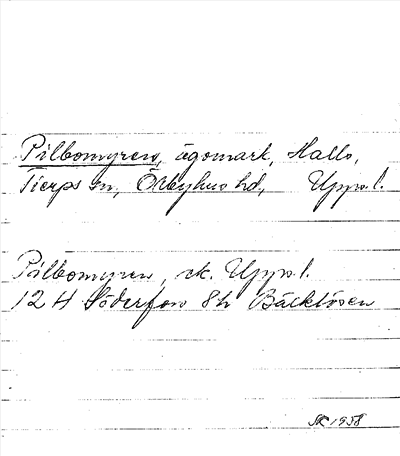 Pilbomyren, ägomark, Hallo,
Tierps sn, Örbyhus hd, Uppl.
Pilbomyren, ek. Uppl.
12 H Söderfors 8h Bäcklösen
SK 1958